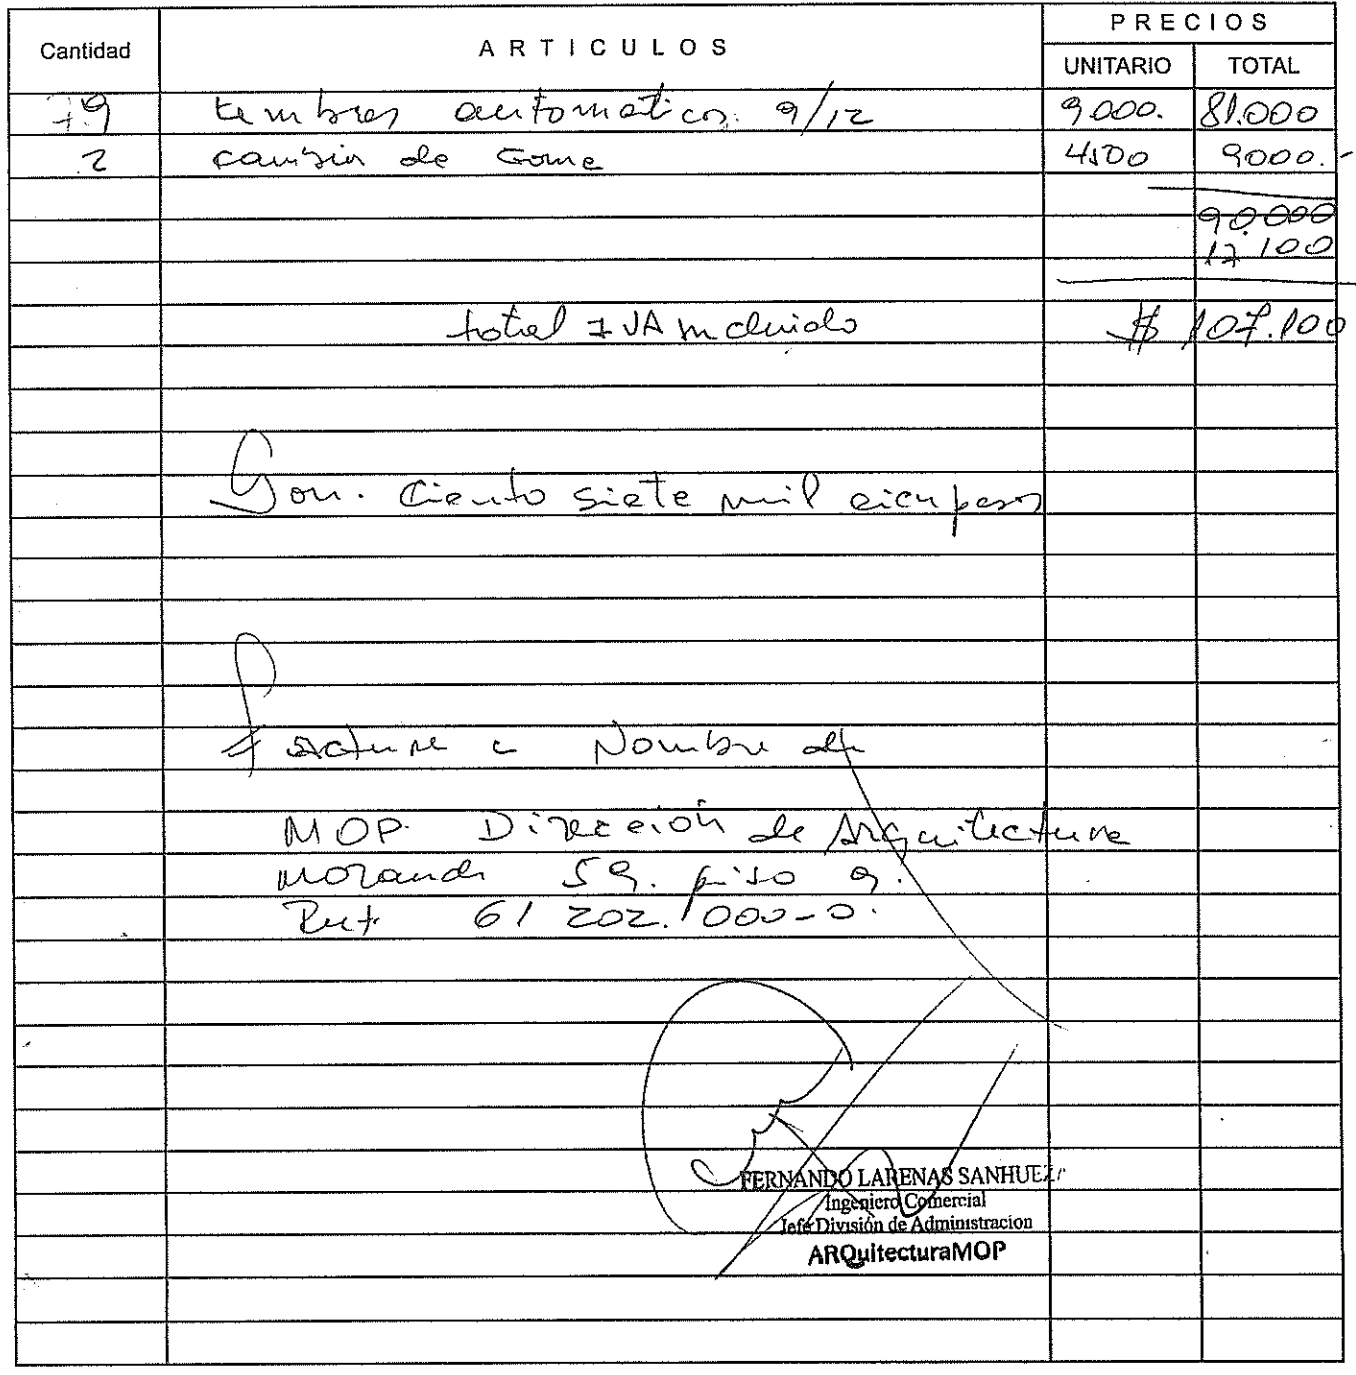 PRECIOS
Cantidad ARTICULOS UNITARIO TOTAL
9 timbres automaticos. 9/12 9.000. 81.000
2 cambio de Goma 4500 9000.-
90.000
17.100
total IVA incluido $ 107.100
Son. Ciento siete mil cien pesos
factura a Nombre de
MOP. Dirección de Arquitectura
Morande 59. piso 9.
Rut 61 202.000-0.
FERNANDO LARENAS SANHUEZA
Ingeniero Comercial
Jefe División de Administracion
ARQuitecturaMOP